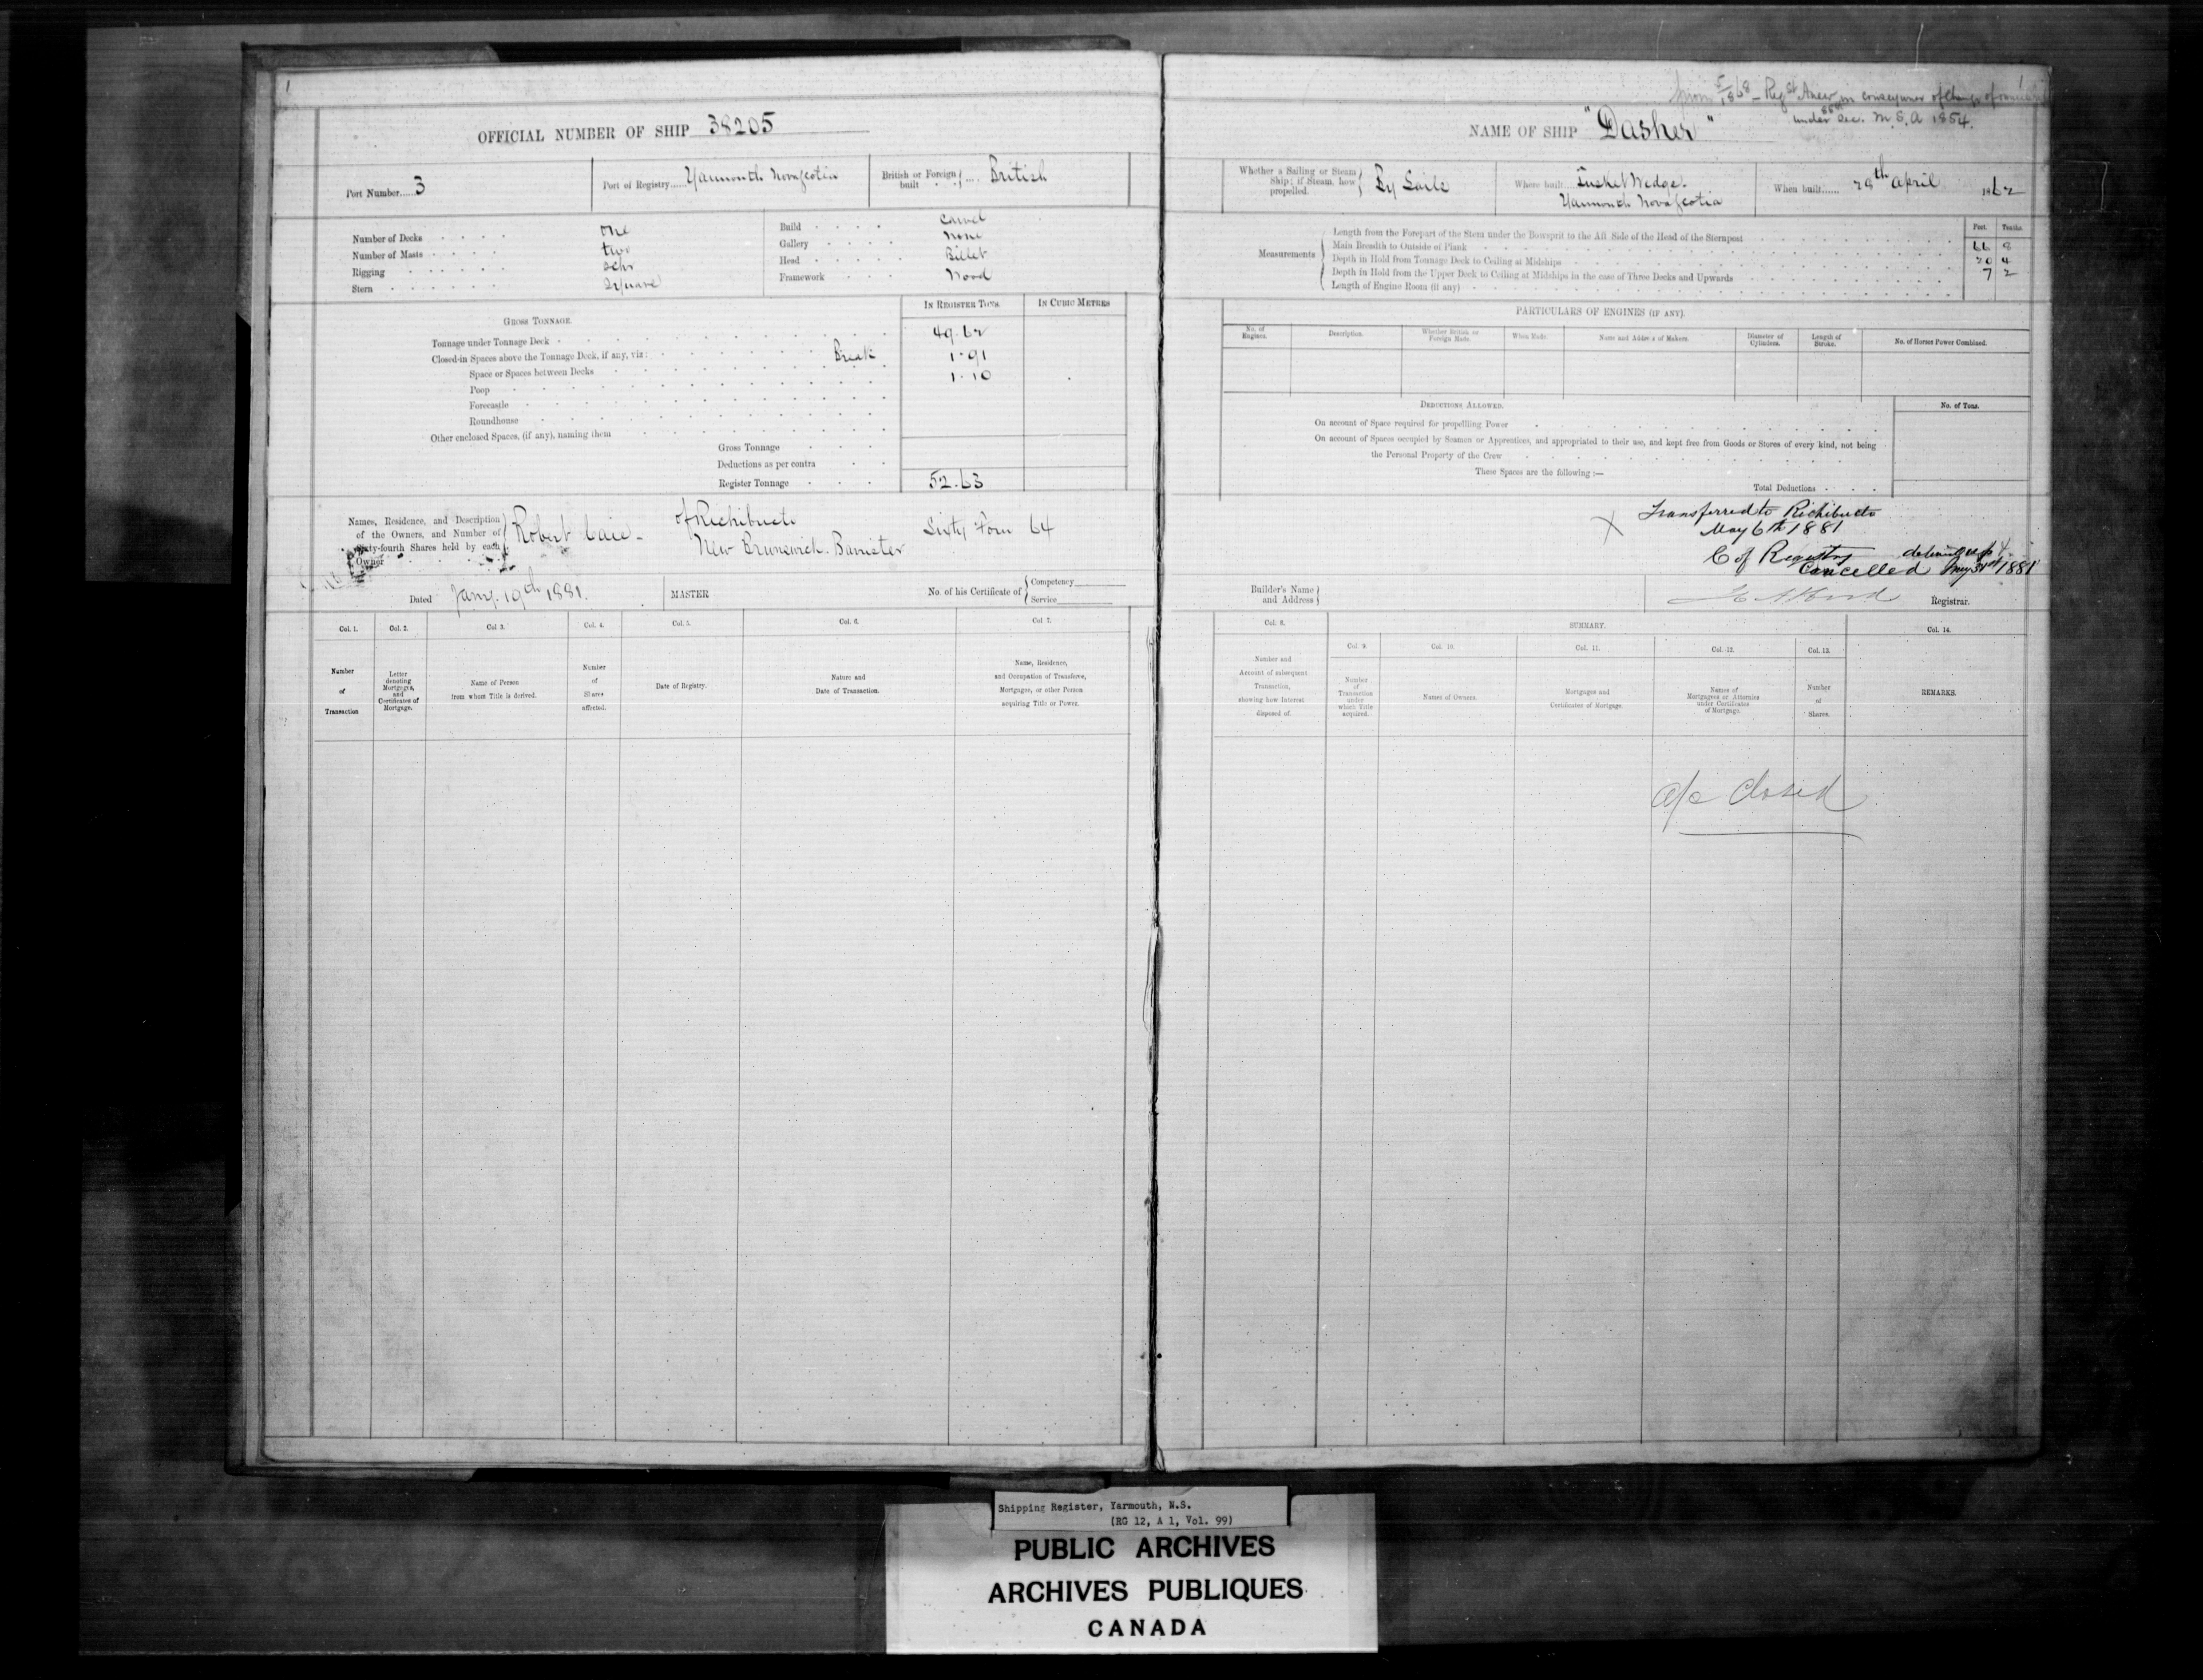 1
OFFICIAL NUMBER OF SHIP 38205
Port Number......3
Port of Registry......Yarmouth Novascotia
British or Foreign built .... British
Number of Decks one
Number of Masts two
Rigging schr
Stern Square
Build Carvel
Gallery none
Head Billet
Framework Wood
IN REGISTER TONS.
IN CUBIC METRES
GROSS TONNAGE.
Tonnage under Tonnage Deck 49.62
Closed-in Spaces above the Tonnage Deck, if any, viz: Break 1.91
Space or Spaces between Decks 1.10
Poop
Forecastle
Roundhouse
Other enclosed Spaces, (if any), naming them
Gross Tonnage
Deductions as per contra
Register Tonnage 52.63
Names, Residence, and Description
of the Owners, and Number of
Sixty-fourth Shares held by each
Owner
Robert Caie - of Richibucto
New Brunswick. Barrister
Sixty Four 64
Dated Jany. 19th 1881.
MASTER
No. of his Certificate of
Competency
Service
Col. 1.
Col. 2.
Col 3.
Col. 4.
Col. 5.
Col. 6.
Col. 7.
Number
of
Transaction
Letter
denoting
Mortgages,
and
Certificates of
Mortgage.
Name of Person
from whom Title is derived.
Number
of
Shares
affected.
Date of Registry.
Nature and
Date of Transaction.
Name, Residence,
and Occupation of Transferee,
Mortgagee, or other Person
acquiring Title or Power.
1
5/1868 - Regd Anew in consequence of change of
under Sec. M.S.A 1854.
NAME OF SHIP "Dasher"
Whether a Sailing or Steam
Ship; if Steam, how
propelled.
By Sails
Where built....Tusket Wedge.
Yarmouth Novascotia
When built...... 28th April 1862
Measurements
Feet. Tenths.
Length from the Forepart of the Stem under the Bowsprit to the Aft Side of the Head of the Sternpost 66 8
Main Breadth to Outside of Plank 20 4
Depth in Hold from Tonnage Deck to Ceiling at Midships 7 2
Depth in Hold from the Upper Deck to Ceiling at Midships in the case of Three Decks and Upwards
Length of Engine Room (if any)
PARTICULARS OF ENGINES (IF ANY).
No. of
Engines.
Description.
Whether British or
Foreign Made.
When Made.
Name and Address of Makers.
Diameter of
Cylinders.
Length of
Stroke.
No. of Horses Power Combined.
DEDUCTIONS ALLOWED.
No. of Tons.
On account of Space required for propelling Power
On account of Spaces occupied by Seamen or Apprentices, and appropriated to their use, and kept free from Goods or Stores of every kind, not being
the Personal Property of the Crew
These Spaces are the following:—
Total Deductions
X Transferred to Richibucto
May 6th 1881
C of Registry delivered up &
Cancelled May 31st 1881
Builder's Name
and Address
Registrar.
Col. 8.
SUMMARY.
Col. 14.
Col. 9.
Col. 10.
Col. 11.
Col. 12.
Col. 13.
Number and
Account of subsequent
Transaction,
showing how Interest
disposed of.
Number
of
Transaction
under
which Title
acquired.
Names of Owners.
Mortgages and
Certificates of Mortgage.
Names of
Mortgagees or Attornies
under Certificates
of Mortgage.
Number
of
Shares.
REMARKS.
a/c Closed
Shipping Register, Yarmouth, N.S.
(RG 12, A 1, Vol. 99)
PUBLIC ARCHIVES
ARCHIVES PUBLIQUES
CANADA